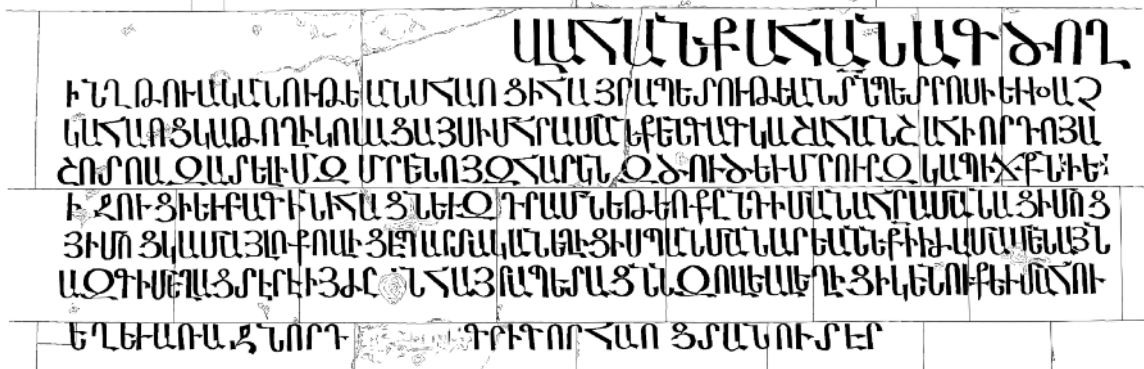 ՎԱՀԱՆՔԱՀԱՆԱԳԾՈՂ
ԻՆՂԹՈՒԱԿԱՆՈՒԹԵԱՆՍՀԱՈՑԻՀԱՅՐԱՊԵՏՈՒԹԵԱՆՏՆՊԵՏՐՈՍԻԵՒԽԱՉ
ԿԱՀԱՌՑԿԱԹՈՂԻԿՈՍԱՑԱՅՍԻՄՀՐԱՄԱՆԷՔԵՆԳԱԳԿԱՇԱՀԱՆՇԱՀԻՈՐԴՈՅԱ
ՇՈՏՈԱԶԱՐԵԼԻՄԶ ՄՐԵՆՈՅԶՀԱՐԿՆԶԾՈՒԾԵՒՄՐՈՒՐԶԿԱՊԻՃՔՆԻԵ
ԻՁՈՒՑԻԵՒԲԱԳԻՆԻՀԱՑՆԵՒԶԴՐԱՄՆԵԹԵՈՔԸՆԴԻՄԱՆԱՀՐԱՄԱՆԱՑԻՄՈՑ
ՅԻՄՈՑԿԱՄԱՅԼՈՔՈՒՑԷՊԱՐՍԿԱԿԱՆԵՂԻՑԻՍՊԱՆՄԱՆԱՐԵԱՆԷՔԻՒԱՄԱՄԵՆԱՅՆ
ԱԶԳԻՄԵՂԱՑՏԷՐԷԻՅԺԸՆՀԱՅՐԱՊԵՏԱՑՆՆԶՈՎԵԱԼԵՂԻՑԻԿԵՆՈՒՔԵՒՄԱՀՈՒ
ԵՂԵՒԱՌԱՋՆՈՐԴ ԳՐԻԳՈՐՀԱՈՑՏՐԱՆՈՒՏԷՐ